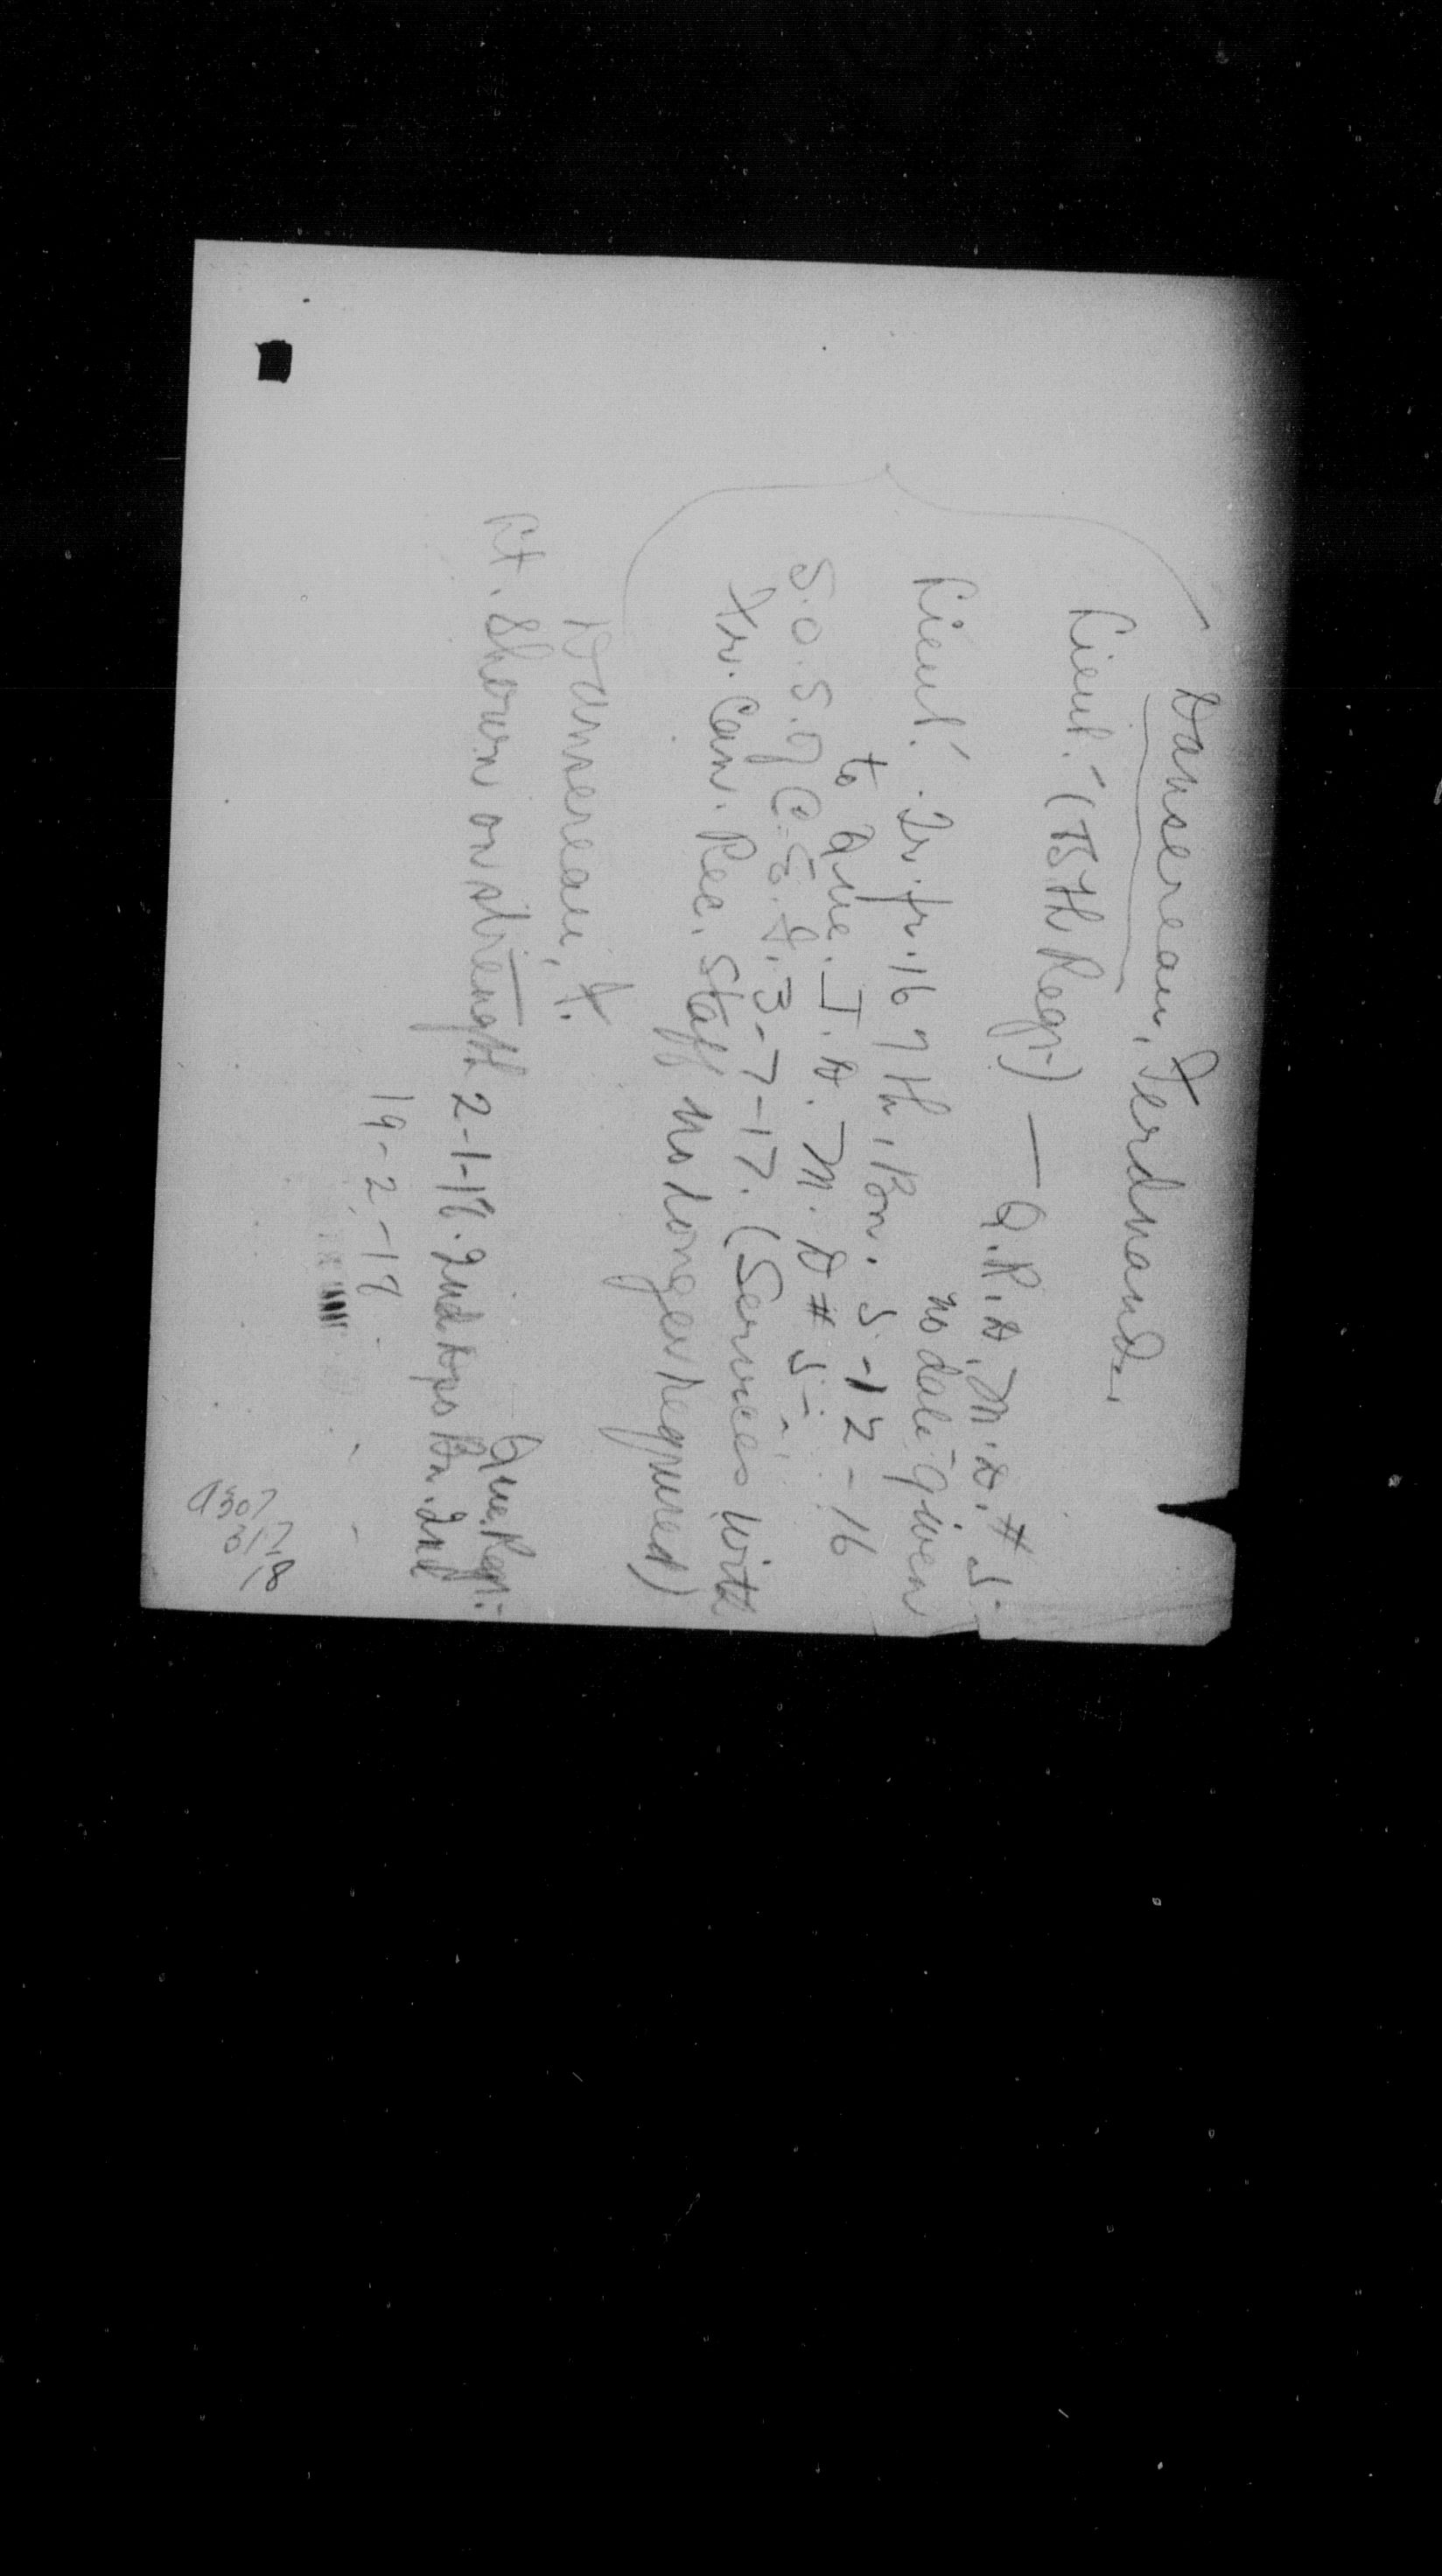 Dansereau, Ferdinand.
Lieut. (75th Regt) — Q.R.D. M.D. # 5.
no date given
Lieut. Tr. fr. 167th, Bn. 5-12-16
to Que. I.D. M.D # 5.
S.O.S. of C.E.F. 3-7-17. (Services with
Fr. Can. Rec. Staff no longer required)
Dansereau, F.
Lt. Shown on strength 2-1-18. 2nd Dps Bn. 2nd
Que. Regt.
19-2-18